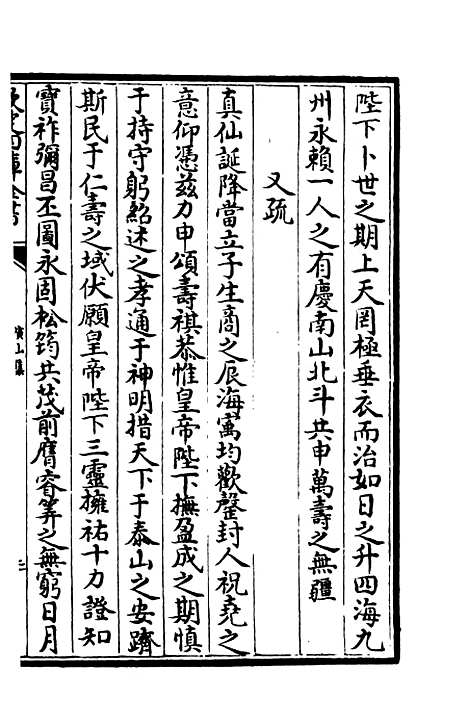 陛下卜世之期上天罔極垂衣而治如日之升四海九
州永賴一人之有慶南山北斗共申萬壽之無疆
又疏
真仙誕降當立子生商之辰海寓均歡罄封人祝堯之
意仰憑兹力申頌壽祺恭惟皇帝陛下撫盈成之期慎
于持守躬紹述之孝通于神明措天下于泰山之安躋
斯民于仁壽之域伏願皇帝陛下三靈擁祐十力證知
寶祚彌昌丕圖永固松筠共茂前膺睿筭之無窮日月
欽定四庫全書